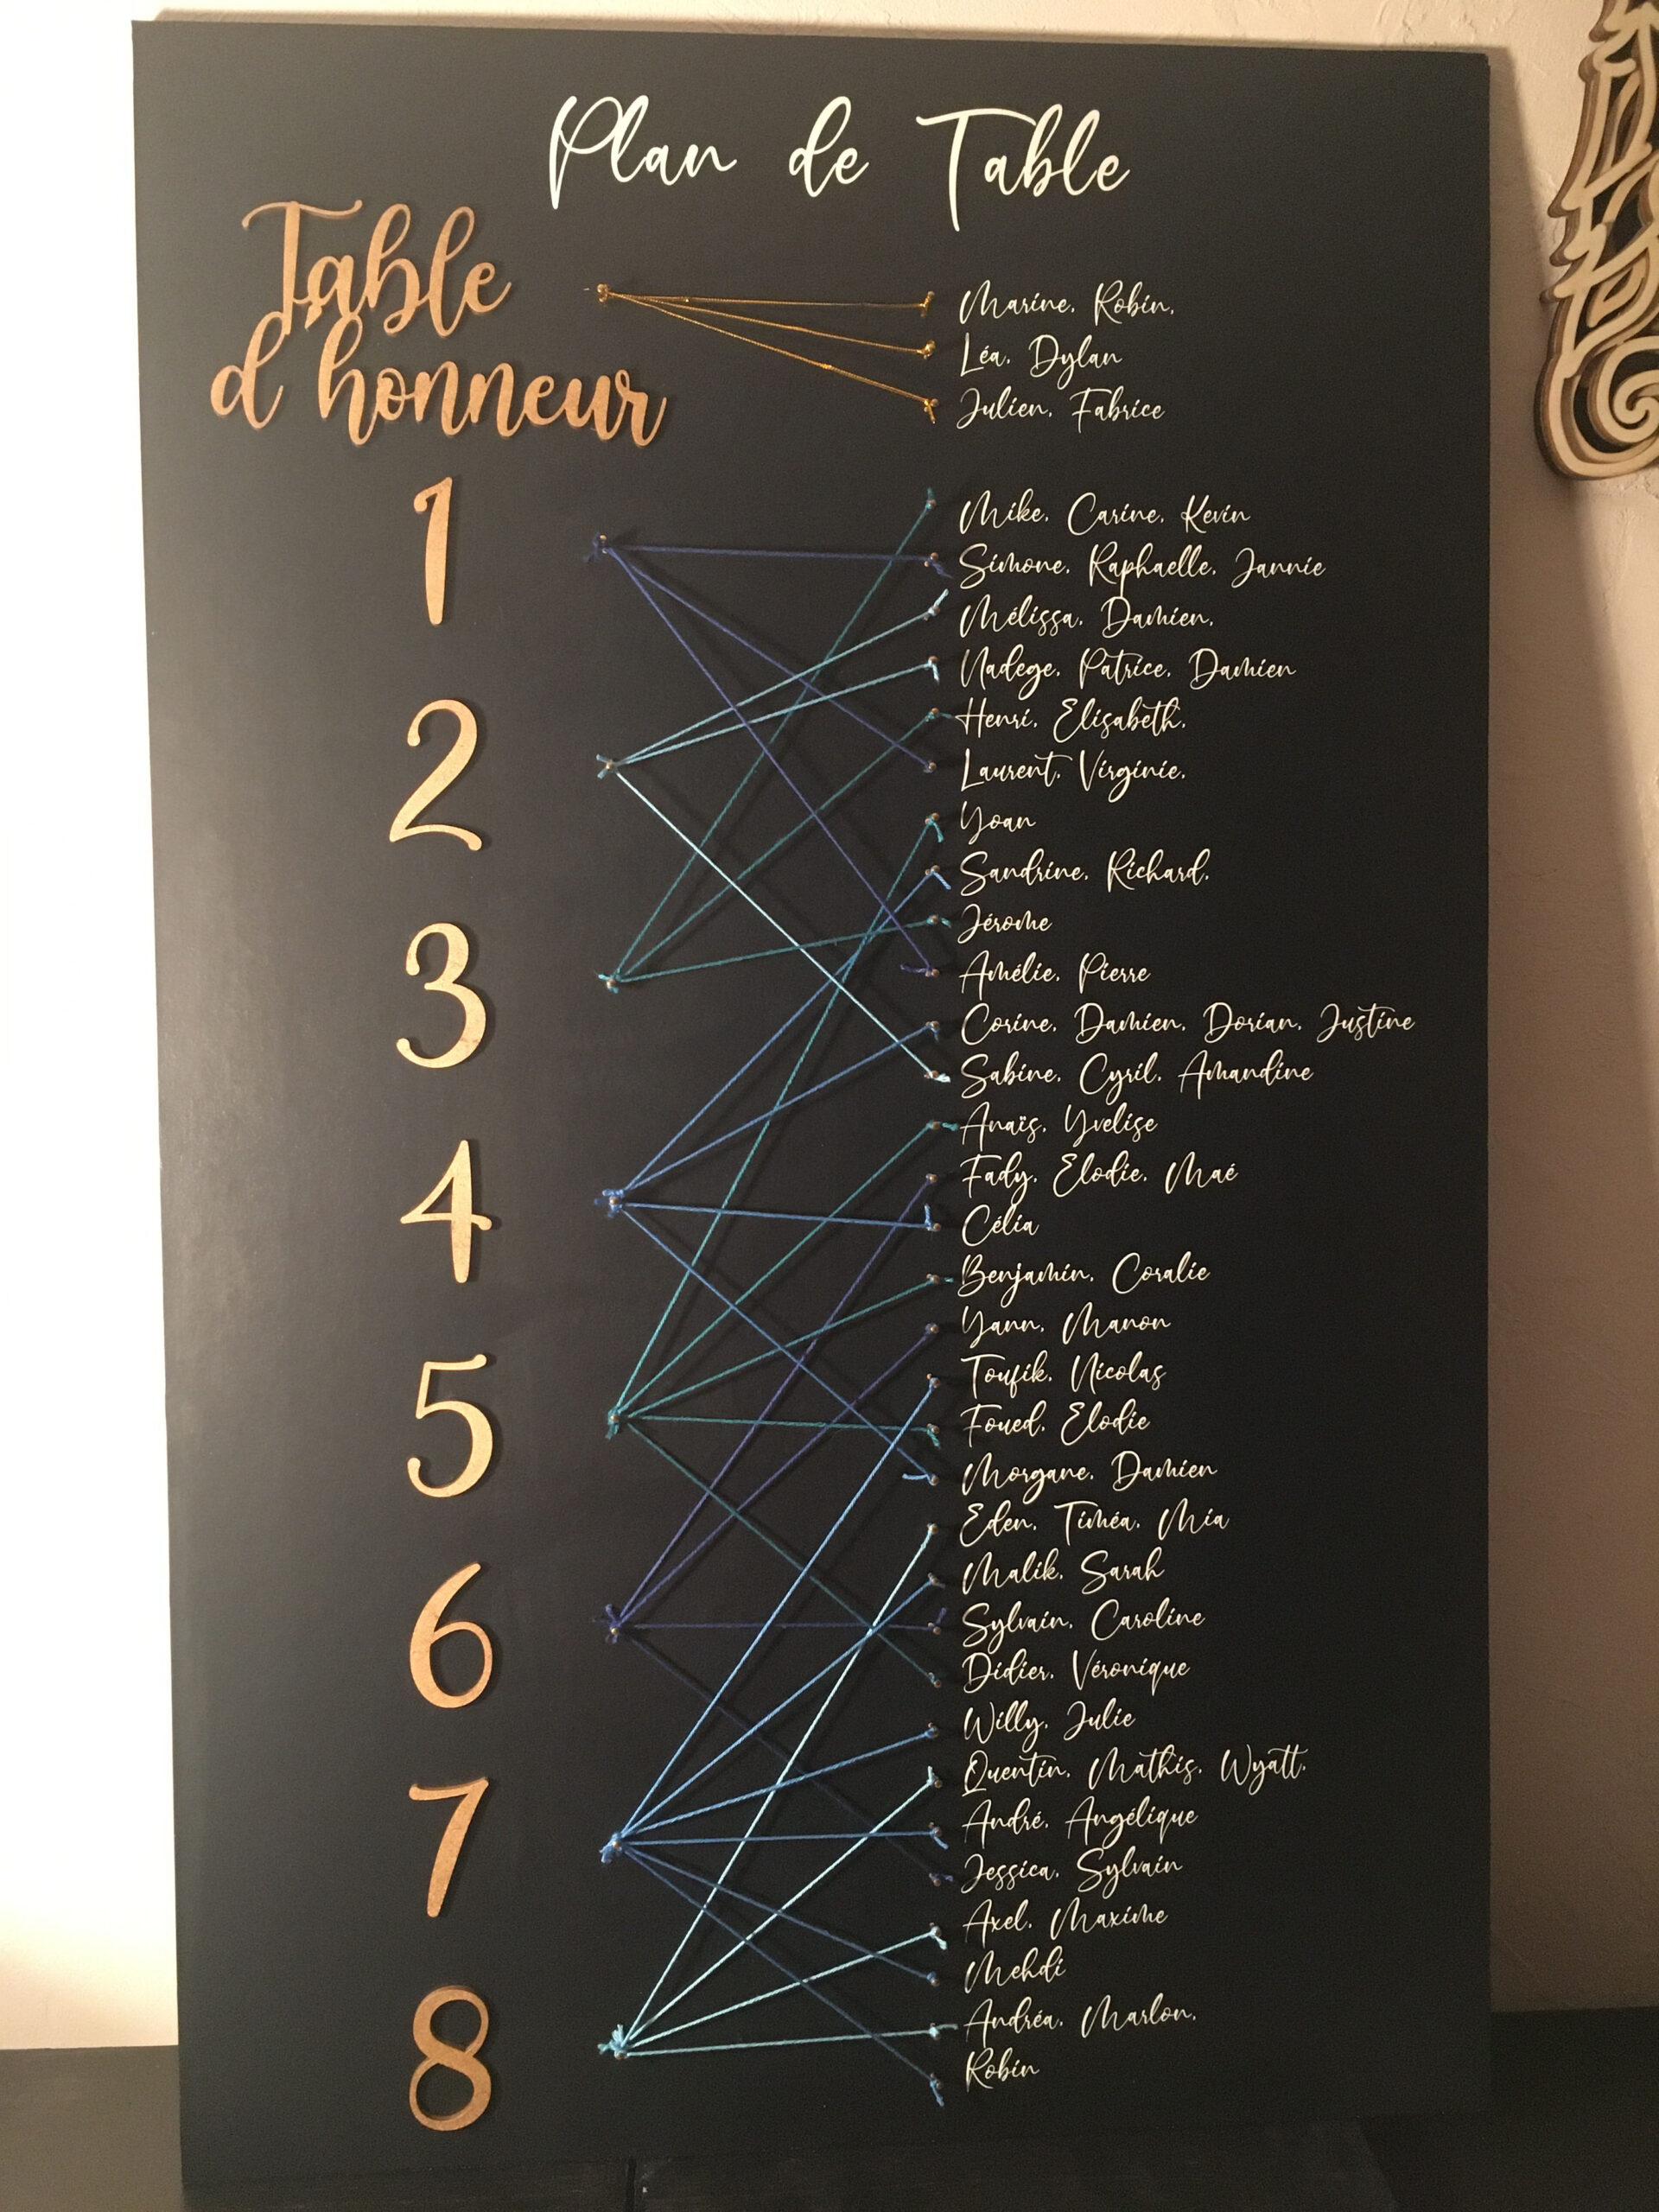 Plan de Table
Table
d'honneur
Marine, Robin,
Léa, Dylan
Julien, Fabrice
1
2
3
4
5
6
7
8
Mike, Carine, Kevin
Simone, Raphaelle, Jannie
Mélissa, Damien,
Nadege, Patrice, Damien
Henri, Elisabeth,
Laurent, Virginie,
Yoan
Sandrine, Richard,
Jérome
Amélie, Pierre
Corine, Damien, Dorian, Justine
Sabine, Cyril, Amandine
Anaïs, Yvelise
Fady, Elodie, Maé
Célia
Benjamin, Coralie
Yann, Manon
Toufik, Nicolas
Foued, Elodie
Morgane, Damien
Eden, Timéa, Mia
Malik, Sarah
Sylvain, Caroline
Didier, Véronique
Willy, Julie
Quentin, Mathis, Wyatt,
André, Angélique
Jessica, Sylvain
Axel, Maxime
Mehdi
Andréa, Marlon,
Robin